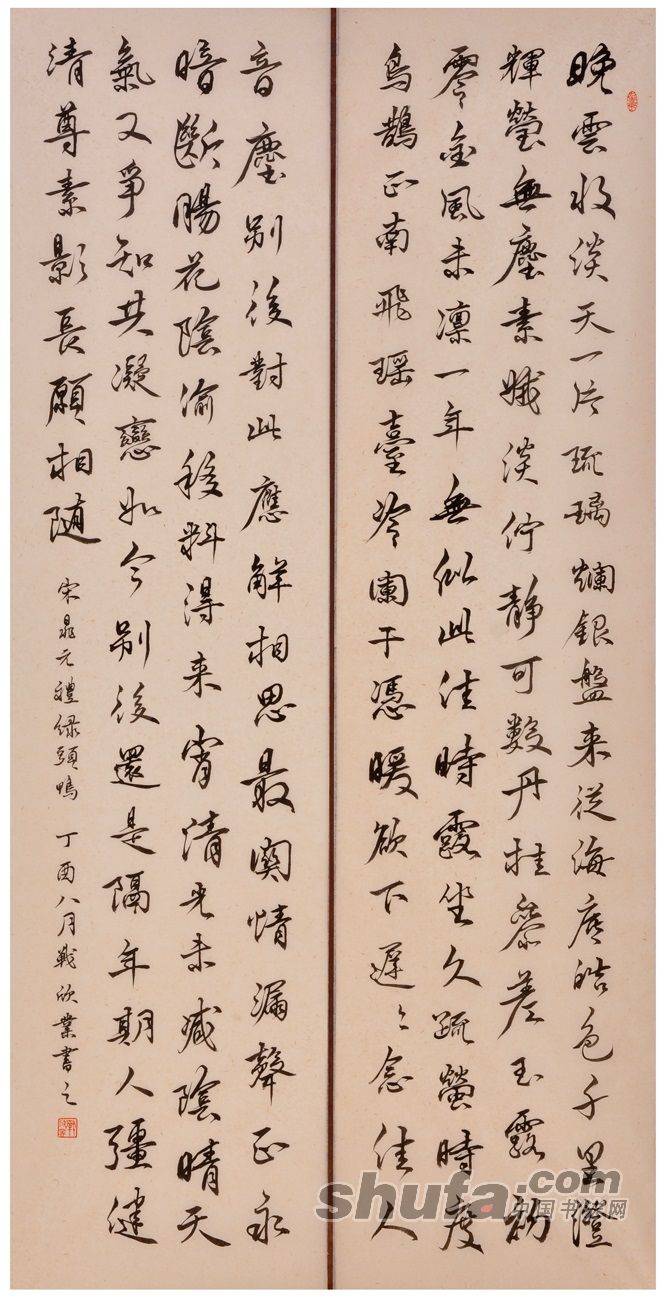 晚雲收淡天一片琉璃爛銀盤来從海底皓色千里澄
輝瑩無塵素娥淡佇靜可數丹桂參差玉露初
零金風未凜一年無似此佳時露坐久疏螢時度
烏鵲正南飛瑶臺冷闌干憑暖欲下遲〻念佳人
音塵别後對此應解相思最関情漏聲正永
暗斷腸花陰偷移料得来宵清光未减陰晴天
氣又爭知共凝戀如今别後還是隔年期人彊健
清尊素影長願相随
宋晁元禮緑頭鴨 丁酉八月戰欣業書之
shufa.com
中国书法网